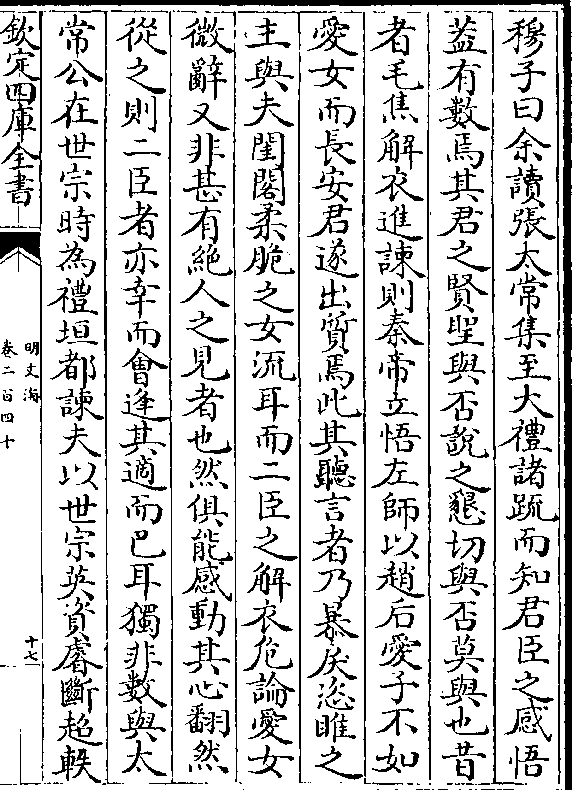 穆子曰余讀張太常集至大禮諸疏而知君臣之感悟
葢有數焉其君之賢聖與否說之懇切與否莫與也昔
者毛焦解衣進諫則秦帝立悟左師以趙后愛子不如
愛女而長安君遂出質焉此其聽言者乃暴戾恣睢之
主與夫閨閣柔脆之女流耳而二臣之解衣危論愛女
微辭又非甚有絶人之見者也然俱能感動其心翻然
從之則二臣者亦幸而會逢其適而已耳獨非數與太
常公在世宗時為禮垣都諫夫以世宗英資睿斷超軼
欽定四庫全書
明文海
卷二百四十
十七